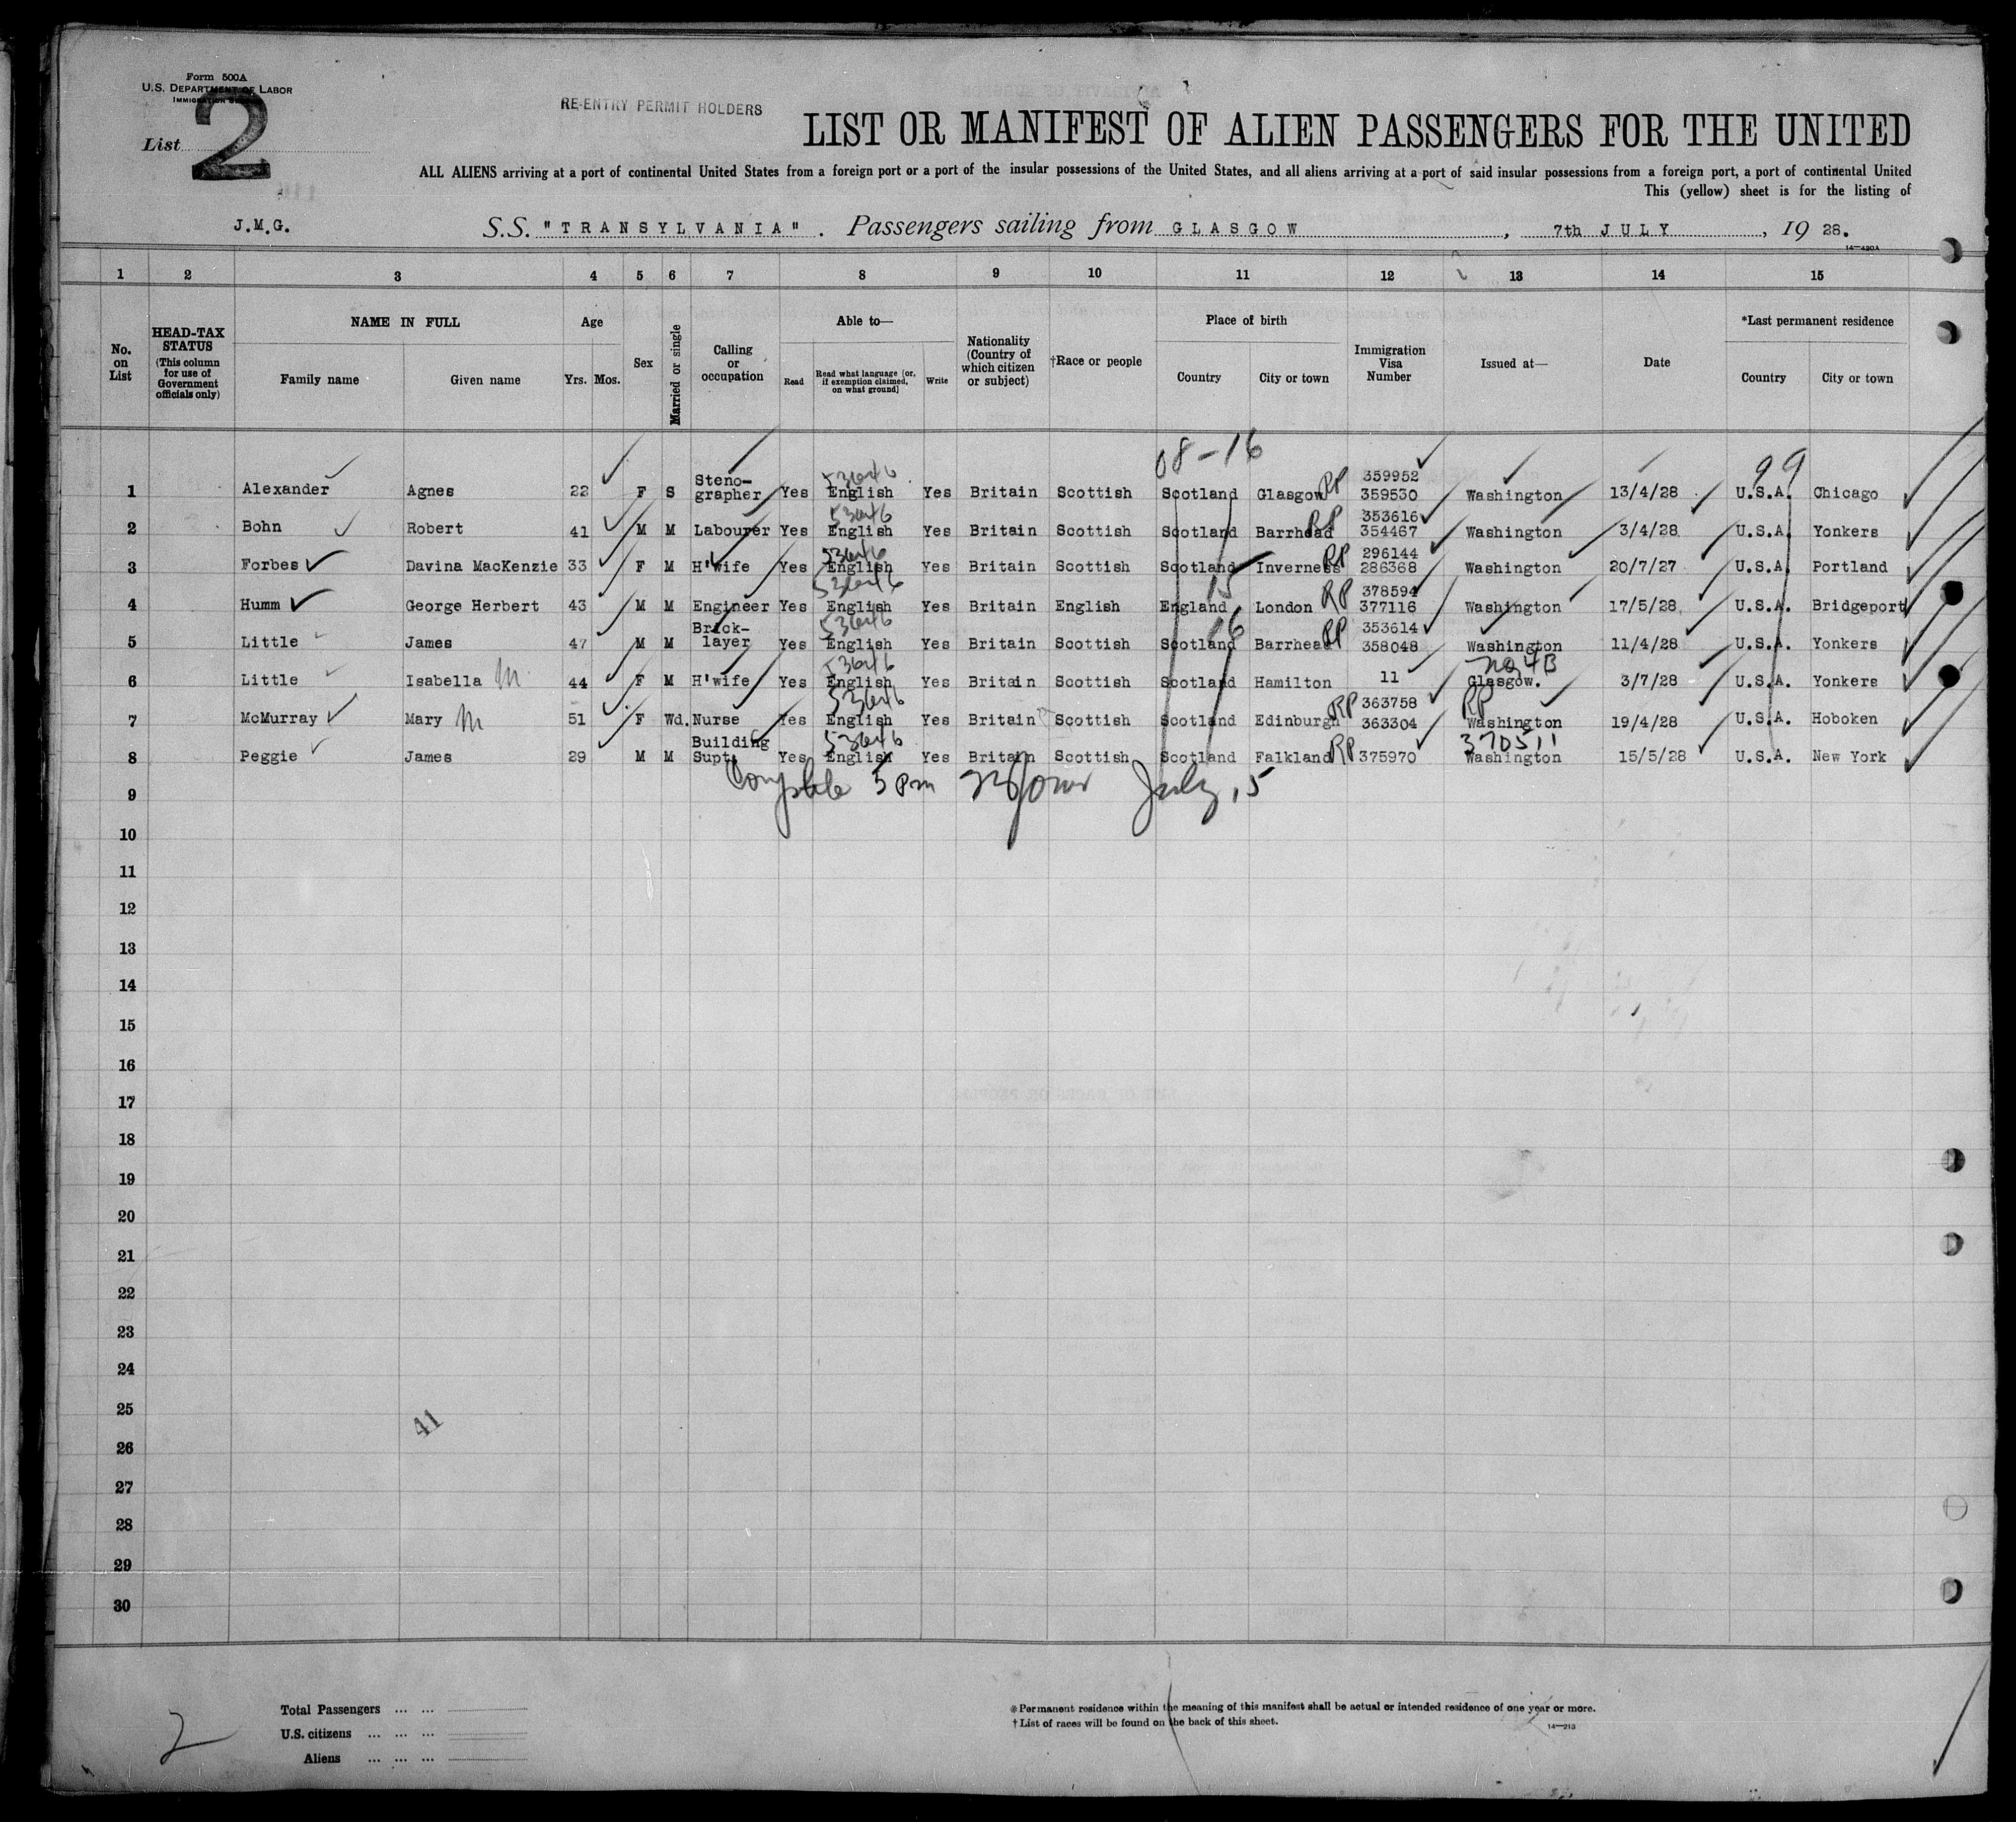 Form 500A
U.S. DEPARTMENT OF LABOR
IMMIGRATION
List 2
RE-ENTRY PERMIT HOLDERS
LIST OR MANIFEST OF ALIEN PASSENGERS FOR THE UNITED
ALL ALIENS arriving at a port of continental United States from a foreign port or a port of the insular possessions of the United States, and all aliens arriving at a port of said insular possessions from a foreign port, a port of continental United
This (yellow) sheet is for the listing of
J.M.G. S.S. "TRANSYLVANIA". Passengers sailing from GLASGOW, 7th JULY, 1928.
14—480A
1 2 3 4 5 6 7 8 9 10 11 12 13 14 15
No. on List
HEAD-TAX STATUS (This column for use of Government officials only)
NAME IN FULL
Family name Given name
Age
Yrs. Mos.
Sex
Married or single
Calling or occupation
Able to—
Read Read what language (or, if exemption claimed, on what ground) Write
Nationality (Country of which citizen or subject)
†Race or people
Place of birth
Country City or town
Immigration Visa Number
Issued at—
Date
*Last permanent residence
Country City or town
08-16 99
1 Alexander Agnes 22 F S Steno-grapher Yes English 536446 Yes Britain Scottish Scotland Glasgow RP 359952 359530 Washington 13/4/28 U.S.A. Chicago
2 Bohn Robert 41 M M Labourer Yes English 53646 Yes Britain Scottish Scotland Barrhead RP 353616 354467 Washington 3/4/28 U.S.A. Yonkers
3 Forbes Davina MacKenzie 33 F M H'wife Yes English Yes Britain Scottish Scotland Inverness RP 296144 286368 Washington 20/7/27 U.S.A. Portland
4 Humm George Herbert 43 M M Engineer Yes English Yes Britain English England 15 London RP 378594 377116 Washington 17/5/28 U.S.A. Bridgeport
5 Little James 47 M M Brick-layer Yes English Yes Britain Scottish Scotland 16 Barrhead RP 353614 358048 Washington 11/4/28 U.S.A. Yonkers
6 Little Isabella M 44 F M H'wife Yes English Yes Britain Scottish Scotland Hamilton 11 Glasgow. no 4B 3/7/28 U.S.A. Yonkers
7 McMurray Mary M 51 F Wd. Nurse Yes English Yes Britain Scottish Scotland Edinburgh RP 363758 363304 RP Washington 19/4/28 U.S.A. Hoboken
8 Peggie James 29 M M Building Supt. Yes English Yes Britain Scottish Scotland Falkland RP 375970 370511 Washington 15/5/28 U.S.A. New York
9 5 pm July 15
10
11
12
13
14
15
16
17
18
19
20
21
22
23
24
25
41
26
27
28
29
30
2
Total Passengers ... ...
U.S. citizens ... ... ...
Aliens ... ... ...
*Permanent residence within the meaning of this manifest shall be actual or intended residence of one year or more.
†List of races will be found on the back of this sheet.
14—213